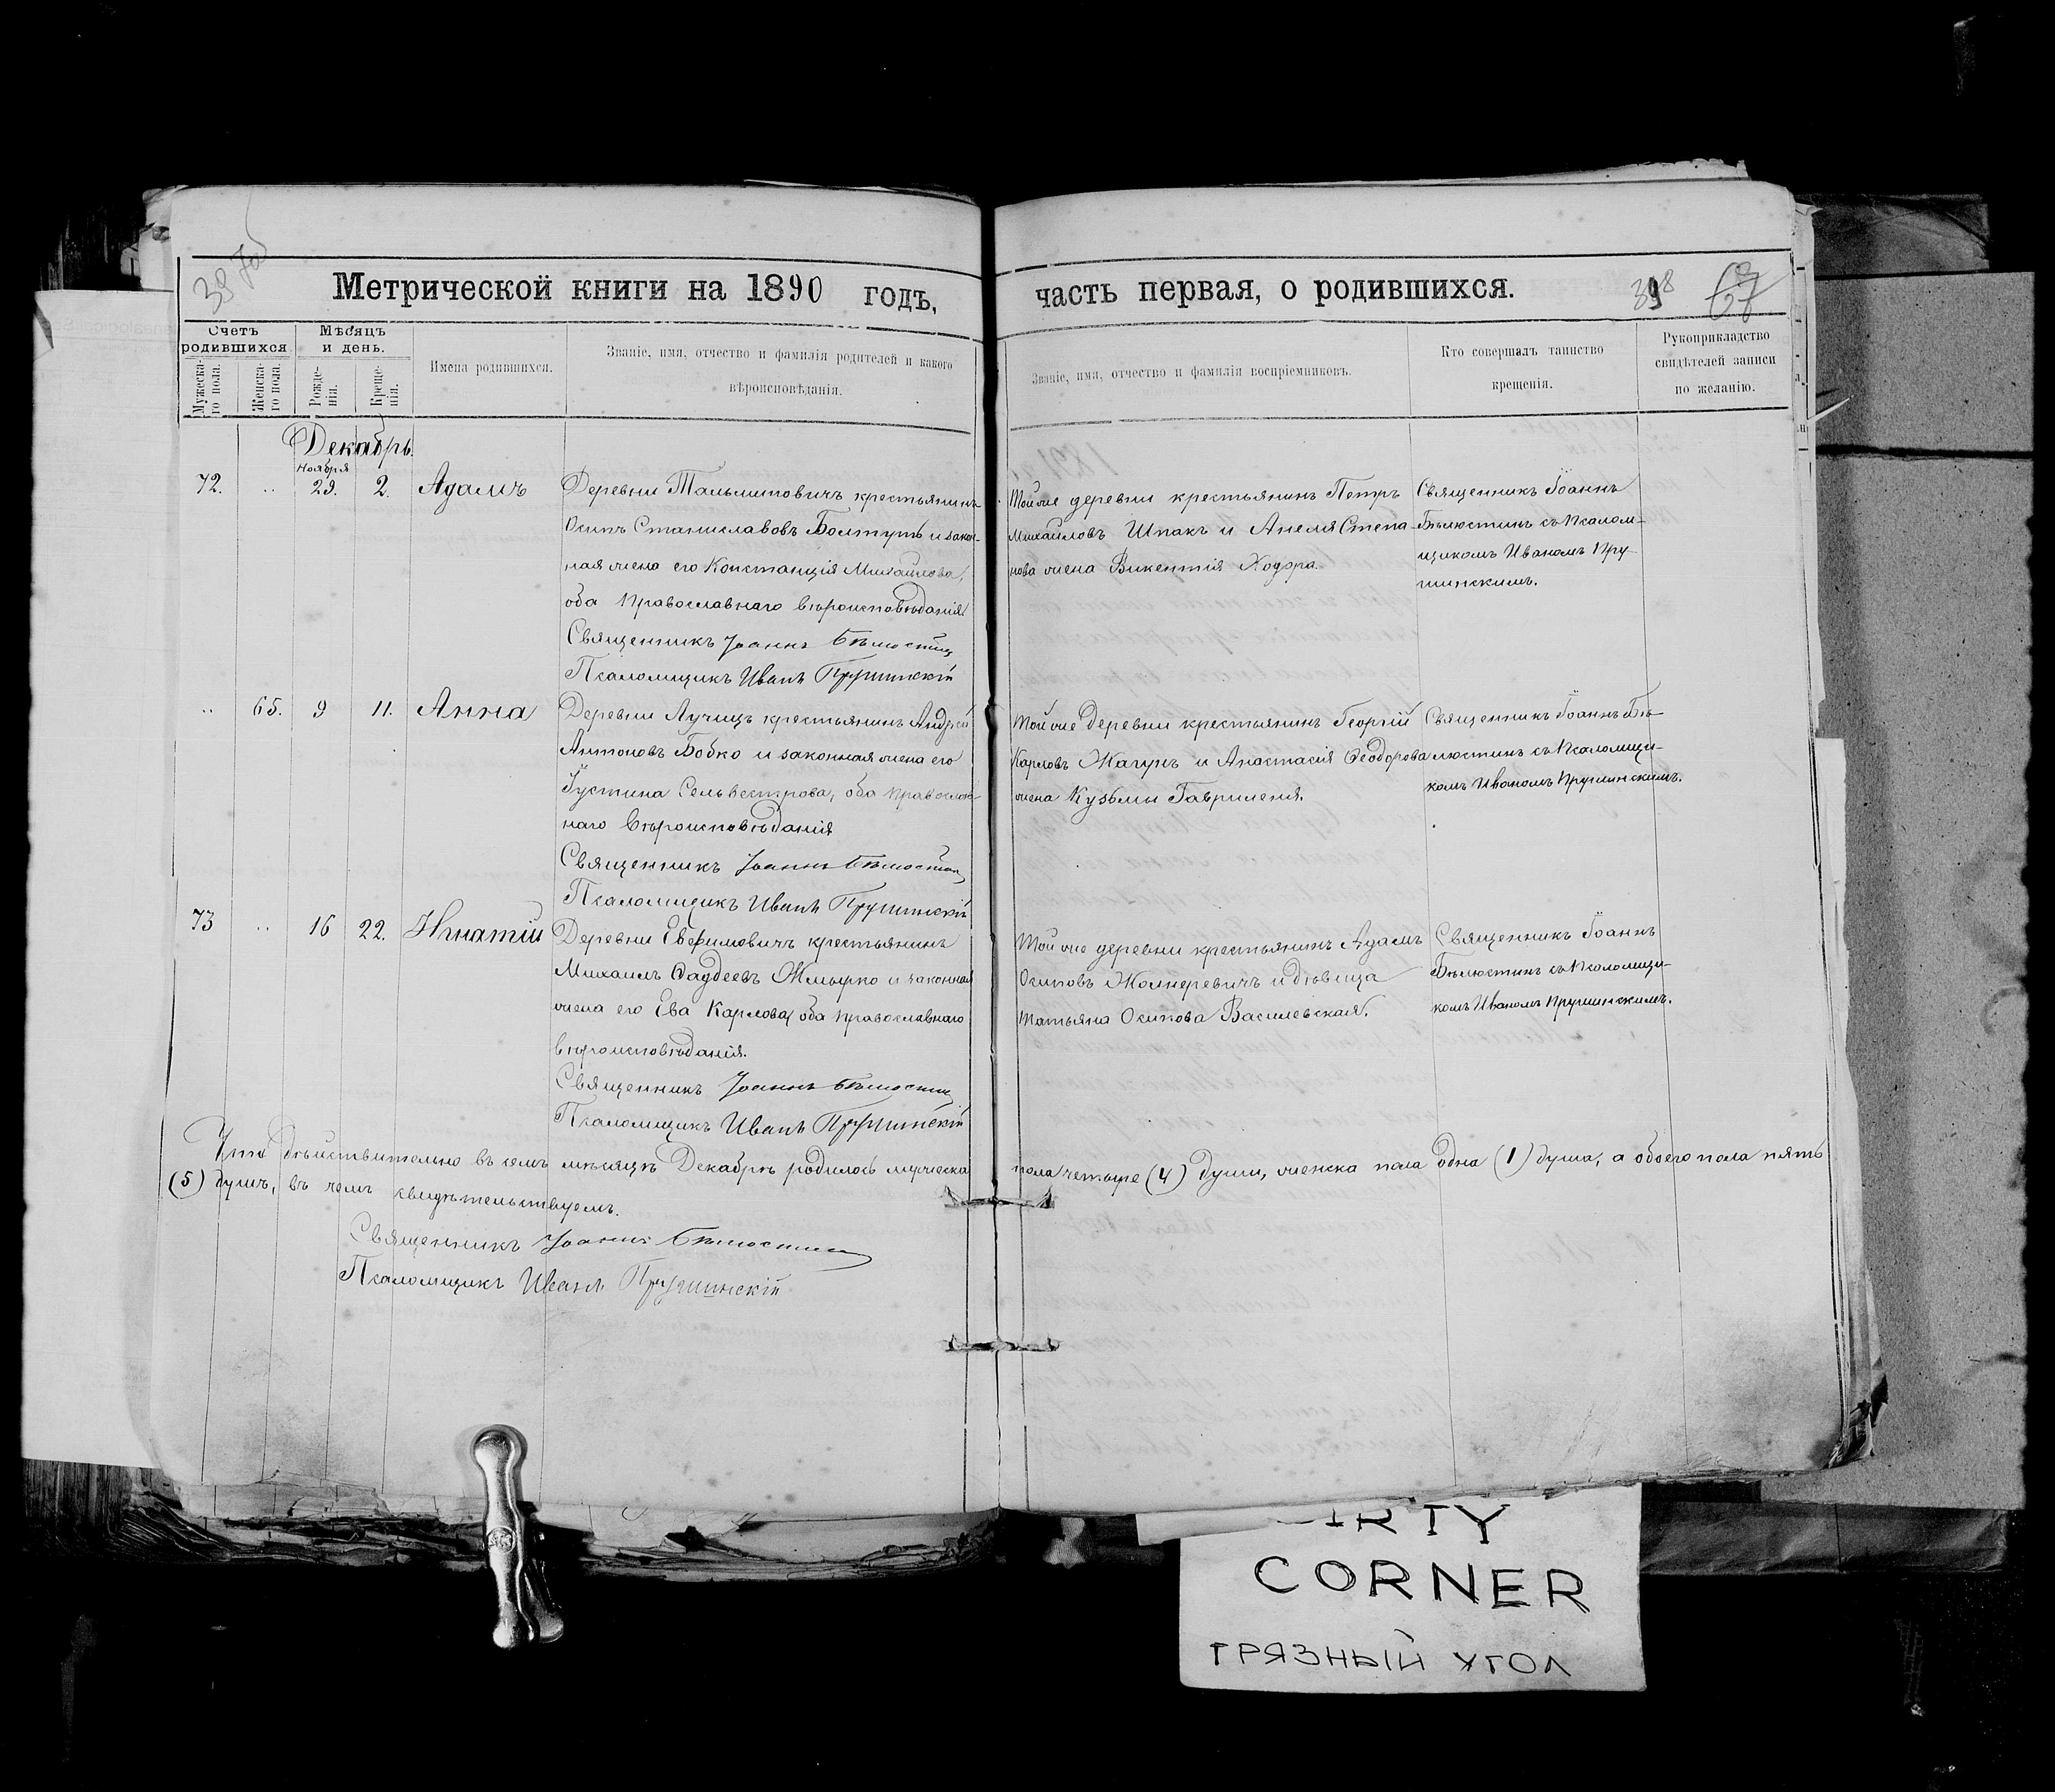 Метрической книги на 1890 годъ,
часть первая, о родившихся.
398
67
Счетъ родившихся.
Мужеска-го пола.
Женска-го пола.
Мѣсяцъ и день.
Рожде-нія.
Креще-нія.
Имена родившихся.
Званіе, имя, отчество и фамилія родителей и какого
вѣроисповѣданія.
Званіе, имя, отчество и фамилія воспріемниковъ.
Кто совершалъ таинство
крещенія.
Рукоприкладство
свидѣтелей записи
по желанію.
Декабрь.
Ноября
72. .. 29. 2. Адамъ
Деревни Тальминовичъ крестьянинъ
Осипъ Станиславовъ Болтуть и закон-
ная жена его Констанція Михайлова,
оба православнаго вѣроисповѣданія
Священникъ Іоаннъ Бѣлюстинъ
Псаломщикъ Иванъ Прушинскій
Той же деревни крестьянинъ Петръ
Михайловъ Шпакъ и Анеля Степа-
нова жена Викентія Ходора.
Священникъ Іоаннъ
Бѣлюстинъ съ псалом-
щикомъ Иваномъ Пру-
шинскимъ.
.. 65. 9 11. Анна
Деревни Лучицъ крестьянинъ Андрей
Антоновъ Бобко и законная жена его
Іустина Сельвестрова, оба православ-
наго вѣроисповѣданія
Священникъ Іоаннъ Бѣлюстинъ
Псаломщикъ Иванъ Прушинскій
Той же деревни крестьянинъ Георгій
Карловъ Жагунъ и Анастасія Ѳеодорова
жена Кузьмы Гавриленя.
Священникъ Іоаннъ Бѣ-
люстинъ съ псаломщи-
комъ Иваномъ Прушинскимъ.
73 .. 16 22. Игнатій
Деревни Евфимовичъ крестьянинъ
Михаилъ Ѳаддеевъ Жмырко и законная
жена его Ева Карлова, оба православнаго
вѣроисповѣданія.
Священникъ Іоаннъ Бѣлюстинъ
Псаломщикъ Иванъ Прушинскій
Той же деревни крестьянинъ Адамъ
Осиповъ Жолнеревичъ и дѣвица
Татьяна Осипова Василевская.
Священникъ Іоаннъ
Бѣлюстинъ съ псаломщи-
комъ Иваномъ Прушинскимъ.
Что дѣйствительно въ семъ мѣсяцѣ Декабрѣ родилось мужеска пола четыре (4) души, женска пола одна (1) душа, а обоего пола пять
(5) душъ, въ чемъ свидѣтельствуемъ.
Священникъ Іоаннъ Бѣлюстинъ
Псаломщикъ Иванъ Прушинскій
CORNER
ГРЯЗНЫЙ УГОЛ